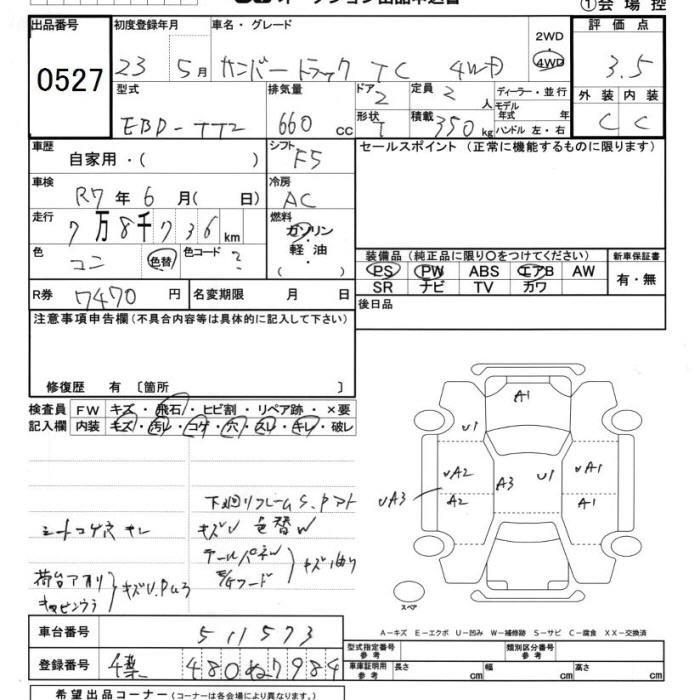 ①会場控
出品番号 初度登録年月 車名・グレード 2WD 4WD 評価点
0527 23 5月 サンバートラック TC 4WD 3.5
型式 排気量 ドア 2 定員 2 人 ディーラー・並行 外装 内装
モデル年式 年
EBD-TT2 660 cc 形状 T 積載 350 kg ハンドル 左・右 C C
車歴 自家用・( ) シフト F5 セールスポイント (正常に機能するものに限ります)
車検 R7年6月( 日) 冷房 AC
走行 7万8千736km 燃料 ガソリン
軽油
色 色替 色コード ? ・( ) 装備品(純正品に限り〇をつけてください) 新車保証書
PS PW ABS エアB AW 有・無
R券 7470円 名変期限 月 日 SR ナビ TV カワ
注意事項申告欄(不具合内容等は具体的に記入して下さい) 後日品
修復歴 有 [箇所 ]
検査員 FW キズ・飛石・ヒビ割・リペア跡・×要
記入欄 内装 キズ・汚レ・コゲ・穴・スレ・キレ・破レ
A1
U1
UA2 A3 U1 UA1
UA3 A2 A1
下廻リフレームS.P
シートコゲ穴キレ キズU 色替W
テールパネW
荷台アオリ キズU.P
スペア
A-キズ E-エクボ U-凹み W-補修跡 S-サビ C-腐食 XX-交換済
車台番号 511573
型式指定番号 参考 類別区分番号 参考
登録番号 480ぬ7984 車庫証明用 参考 長さ cm 幅 cm 高さ cm
希望出品コーナー(コーナーは各会場により異なります。)